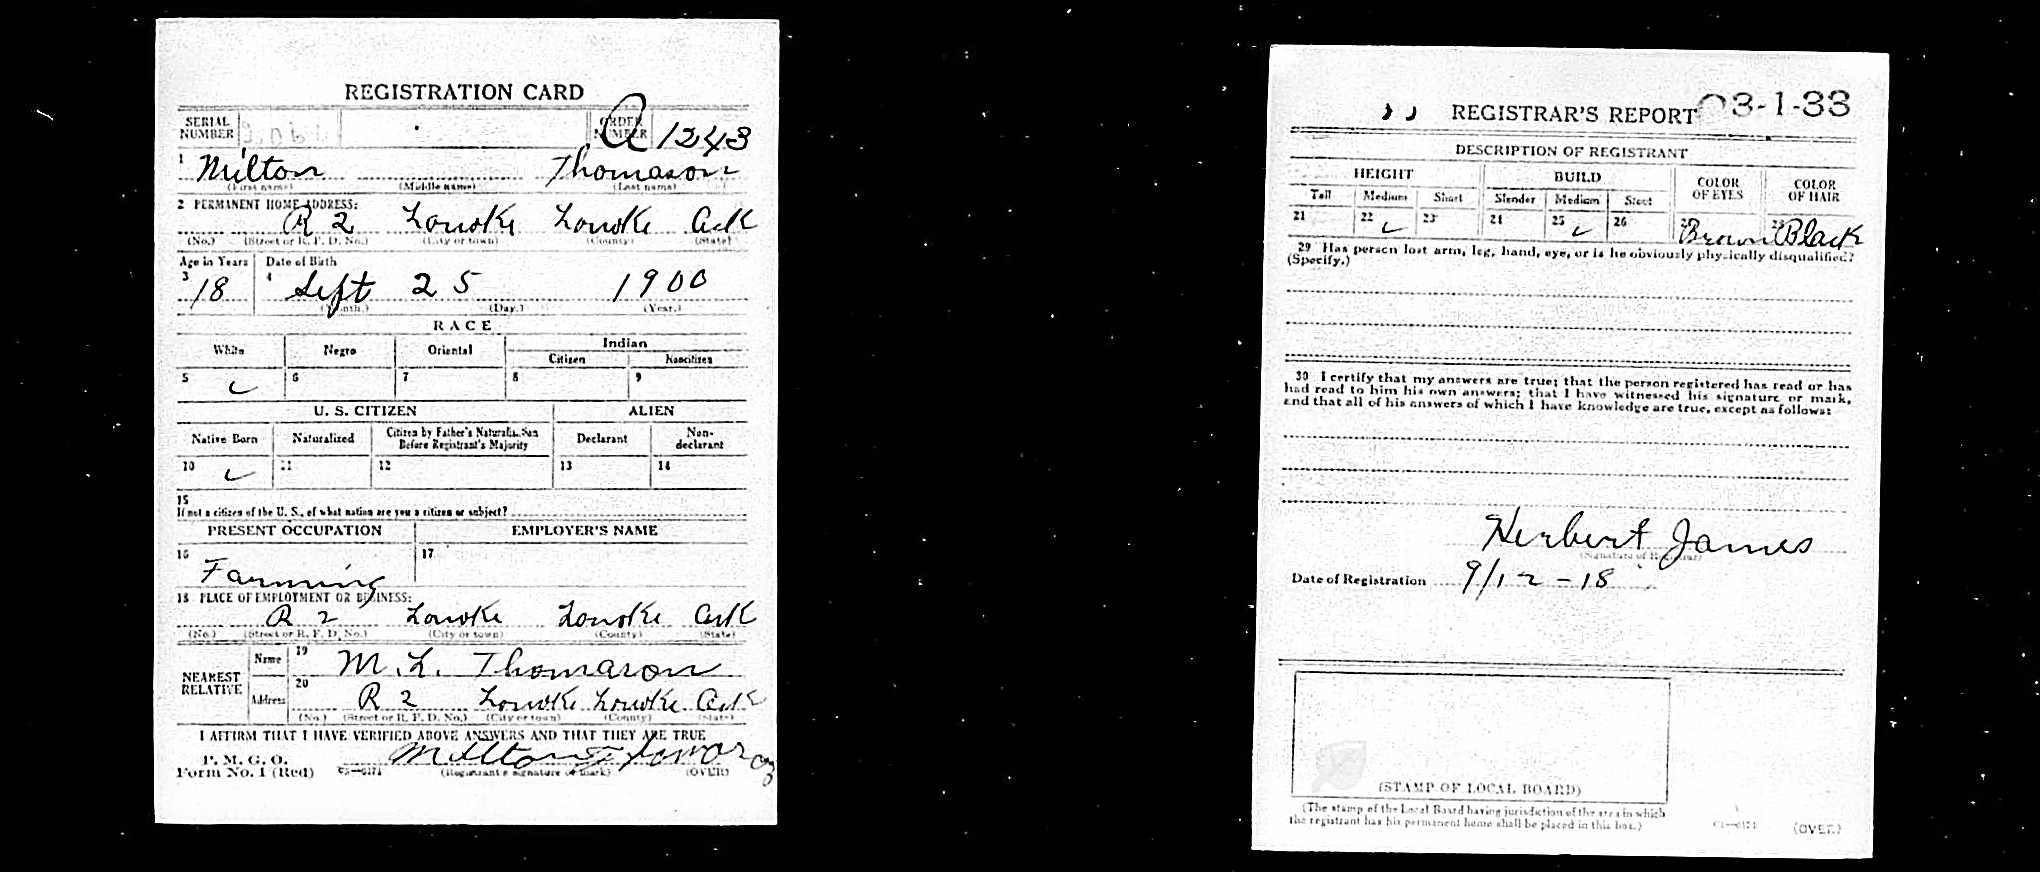 REGISTRATION CARD
SERIAL NUMBER ORDER NUMBER A 1243
1 Milton Thomason
(First name) (Middle name) (Last name)
2 PERMANENT HOME ADDRESS:
R 2 Lonoke Lonoke Ark
(No.) (Street or R. F. D. No.) (City or town) (County) (State)
Age in Years Date of Birth
3 18 4 Sept 25 1900
(Month.) (Day.) (Year.)
RACE
White Negro Oriental Indian
Citizen Noncitizen
5 ✓ 6 7 8 9
U. S. CITIZEN ALIEN
Native Born Naturalized Citizen by Father's Naturalization Before Registrant's Majority Declarant Non-declarant
10 ✓ 11 12 13 14
15
If not a citizen of the U. S., of what nation are you a citizen or subject?
PRESENT OCCUPATION EMPLOYER'S NAME
16 Farming 17
18 PLACE OF EMPLOYMENT OR BUSINESS:
R 2 Lonoke Lonoke Ark
(No.) (Street or R. F. D. No.) (City or town) (County) (State)
NEAREST RELATIVE Name 19 M. L. Thomason
Address 20 R 2 Lonoke Lonoke Ark
(No.) (Street or R. F. D. No.) (City or town) (County) (State)
I AFFIRM THAT I HAVE VERIFIED ABOVE ANSWERS AND THAT THEY ARE TRUE
P. M. G. O.
Form No. 1 (Red) Milton
(Registrant's signature or mark) (OVER)
REGISTRAR'S REPORT 03-1-33
DESCRIPTION OF REGISTRANT
HEIGHT BUILD COLOR OF EYES COLOR OF HAIR
Tall Medium Short Slender Medium Stout
21 22 ✓ 23 24 25 ✓ 26 27 Brown 28 Black
29 Has person lost arm, leg, hand, eye, or is he obviously physically disqualified?
(Specify.)
30 I certify that my answers are true; that the person registered has read or has
had read to him his own answers; that I have witnessed his signature or mark,
and that all of his answers of which I have knowledge are true, except as follows:
Herbert James
(Signature of Registrar)
Date of Registration 9/12-18
(STAMP OF LOCAL BOARD)
(The stamp of the Local Board having jurisdiction of the area in which
the registrant has his permanent home shall be placed in this box.)
(OVER)